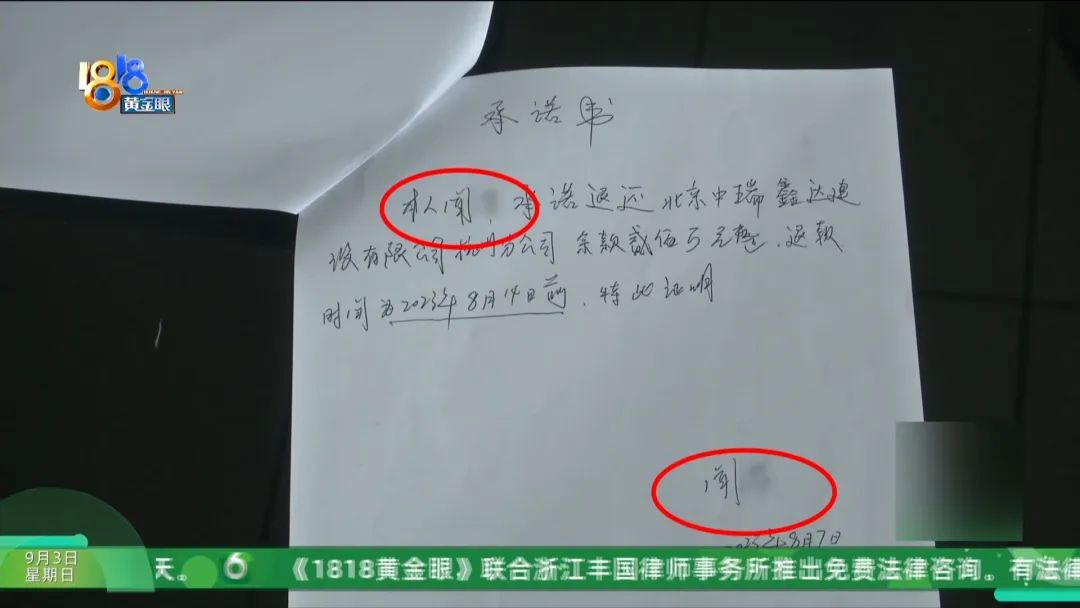 1818
黄金眼
承诺书
本人闻 , 承诺退还北京中瑞鑫达建
设有限公司杭州分公司 余款贰佰万元整, 退款
时间为2023年8月14日前, 特此证明
闻
2023年8月7日
9月3日
星期日
天。 6 《1818黄金眼》联合浙江丰国律师事务所推出免费法律咨询。有法律